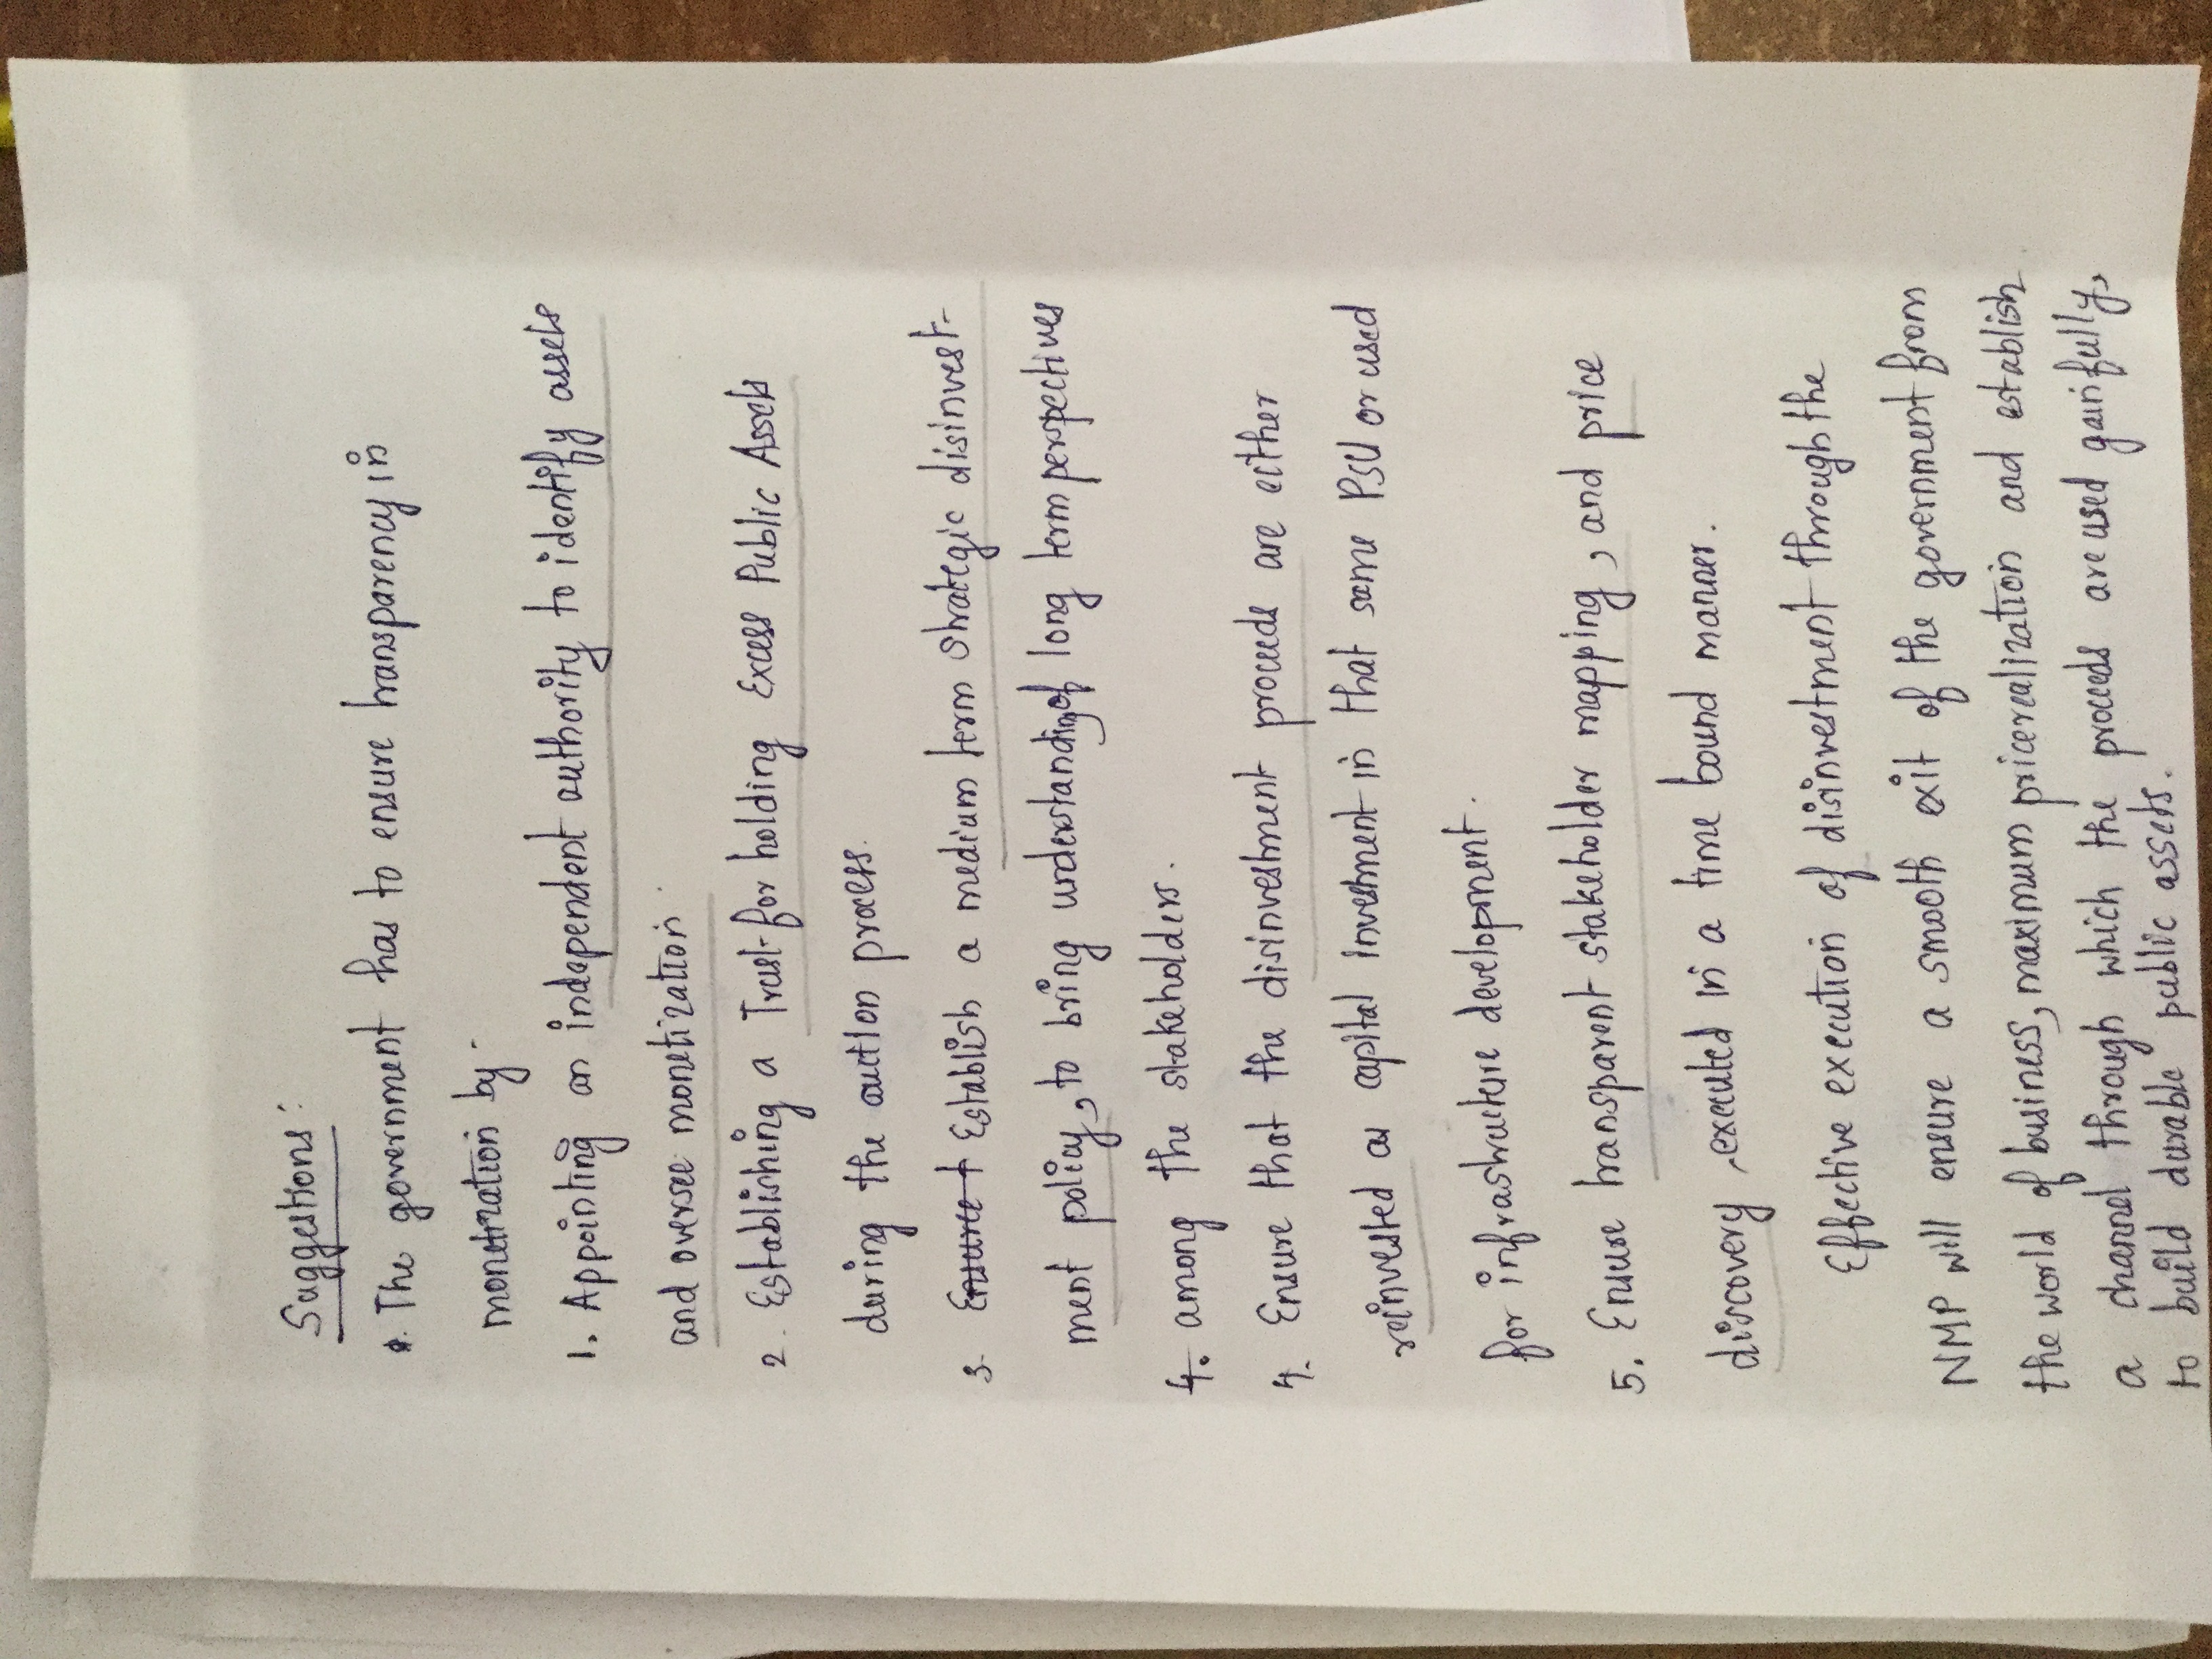 Suggestions:
*. The government has to ensure transparency in
monetization by -
1. Appointing an independent authority to identify assets
and oversee monetization.
2. Establishing a Trust for holding Excess Public Assets
during the auction process.
3. Ensure t Establish a medium term strategic disinvest-
ment policy, to bring understanding of long term perspectives
4. among the stakeholders.
4. Ensure that the disinvestment proceeds are either
reinvested as capital investment in that same PSU or used
for infrastructure development.
5. Ensure transparent stakeholder mapping, and price
discovery, executed in a time bound manner.
Effective execution of disinvestment through the
NMP will ensure a smooth exit of the government from
the world of business, maximum price realization and establish
a channel through which the proceeds are used gainfully,
to build durable public assets.